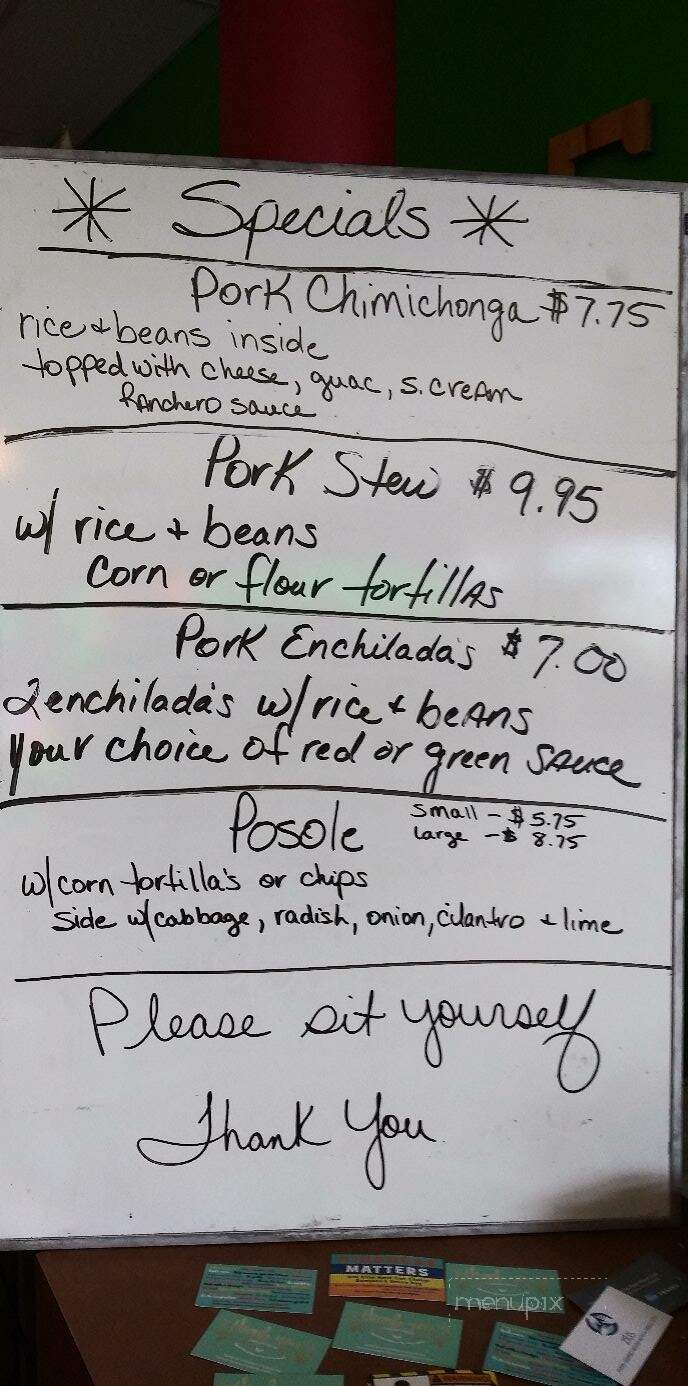 * Specials *
Pork Chimichonga $7.75
rice + beans inside
topped with cheese, guac, s. cream
Ranchero sauce
Pork Stew $9.95
w/ rice + beans
corn or flour tortillas
Pork Enchilada's $7.00
2 enchilada's w/ rice + beans
your choice of red or green sauce
Posole
small - $5.75
large - $8.75
w/ corn tortilla's or chips
side w/ cabbage, radish, onion, cilantro + lime
Please sit yourself
Thank You
MATTERS
menupix